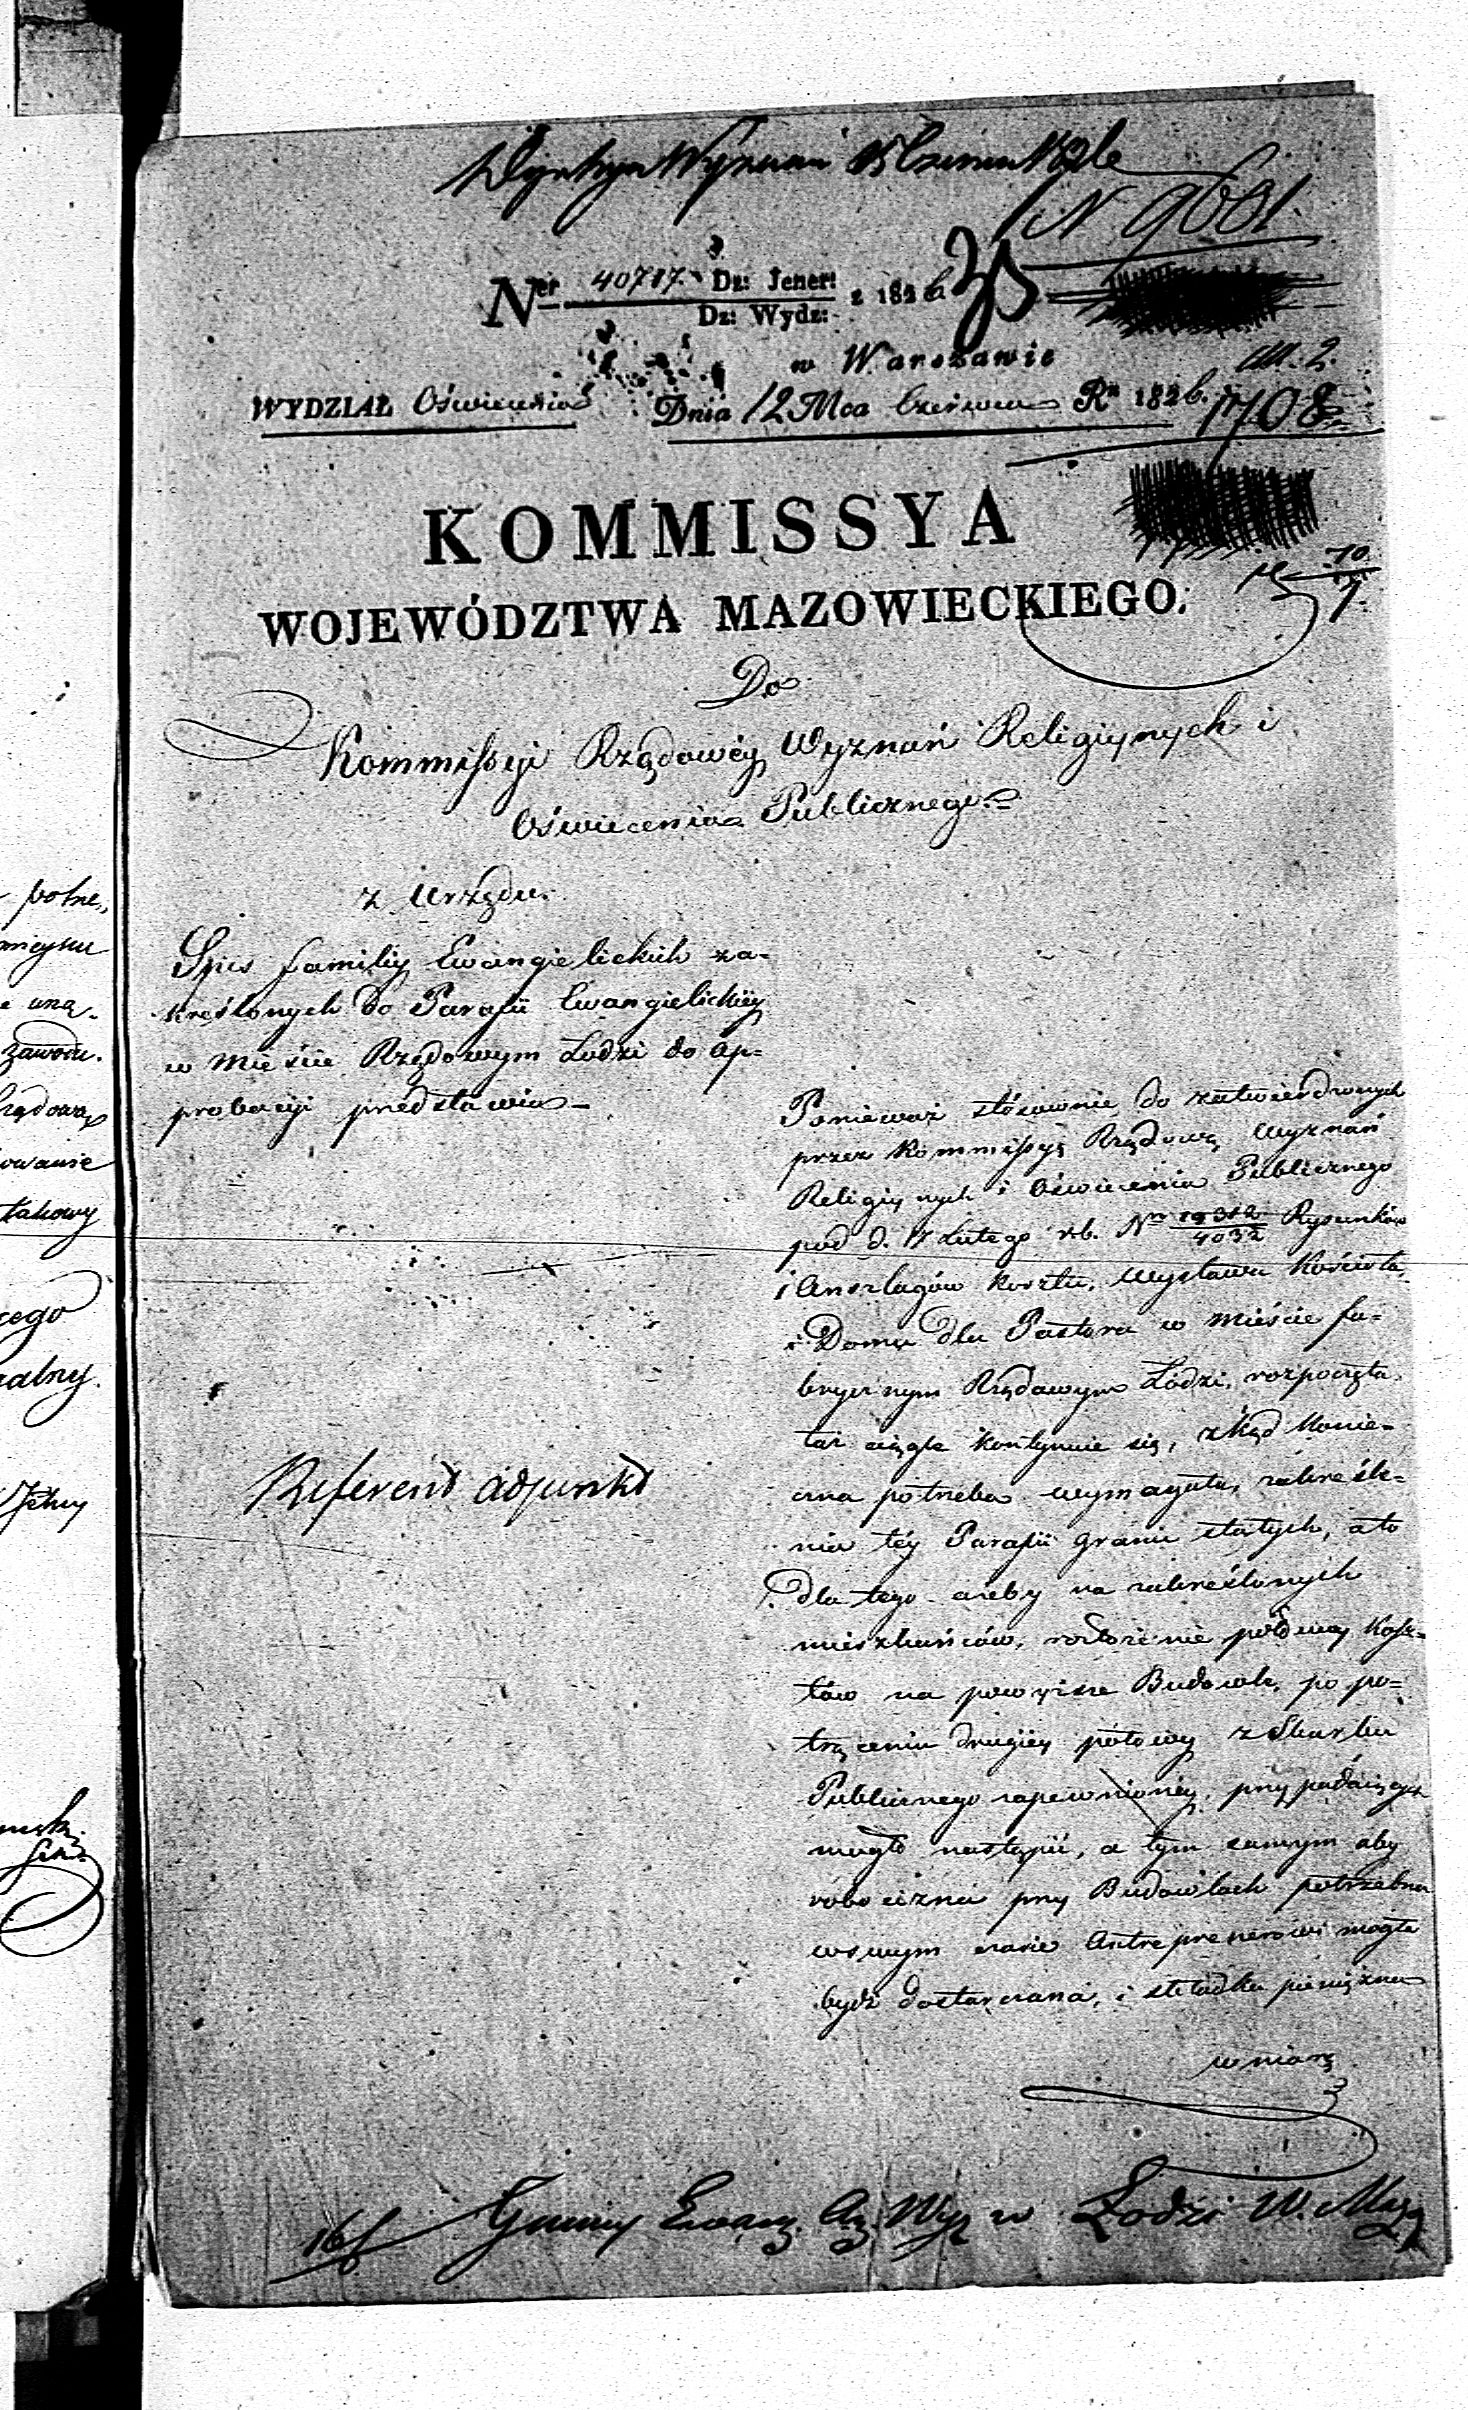 Wyznań 15 Czerwca 1826
N 9681
Ner 40787. Dz: Jener: z 1826
Dz: Wydz:
w Warszawie
WYDZIAŁ Oświecenia Dnia 12 Mca Czerwca Rn 1826.
1708
KOMMISSYA
WOJEWÓDZTWA MAZOWIECKIEGO.
Do
Kommissyi Rządowéy Wyznań Religiynych i
Oświecenia Publicznego.
z Urzędu.
Spis familiy Ewangielickich za-
kreślonych do Parafii Ewangielickiéy
w Mieście Rządowym Łodzi do ap-
probacyi przedstawia
Referent Adjunkt
Ponieważ stósownie do zatwierdzonych
przez Kommissyą Rządową Wyznań
Religiynych i Oświecenia Publicznego
pod d. 17 Lutego r.b. Nro 19312/4032 Rysunków
i Anszlagów kosztu, wystawa Kościoła
i Domu dla Pastora w mieście fa-
brycznym Rządowym Łodzi, rozpoczęta
iuż ciągle kontynuie się, zkąd konie-
czna potrzeba wymagała, zakreśle-
nia téy Parafii granic stałych, a to
dla tego ażeby na zakreślonych
mieszkańców, rozłożenie połowy kosz-
tów na powyższe Budowle, po po-
trąceniu drugiéy połowy z Skarbu
Publicznego zapewnionéy, przypadaiących
mogło nastąpić, a tym samym aby
robocizna przy Budowlach potrzebna
w swym czasie Antreprenerowi mogła
bydź dostarczana, i składka pieniężna
w miarę
Gminy Ewang. Aug. Wyz w Łodzi W. Maz